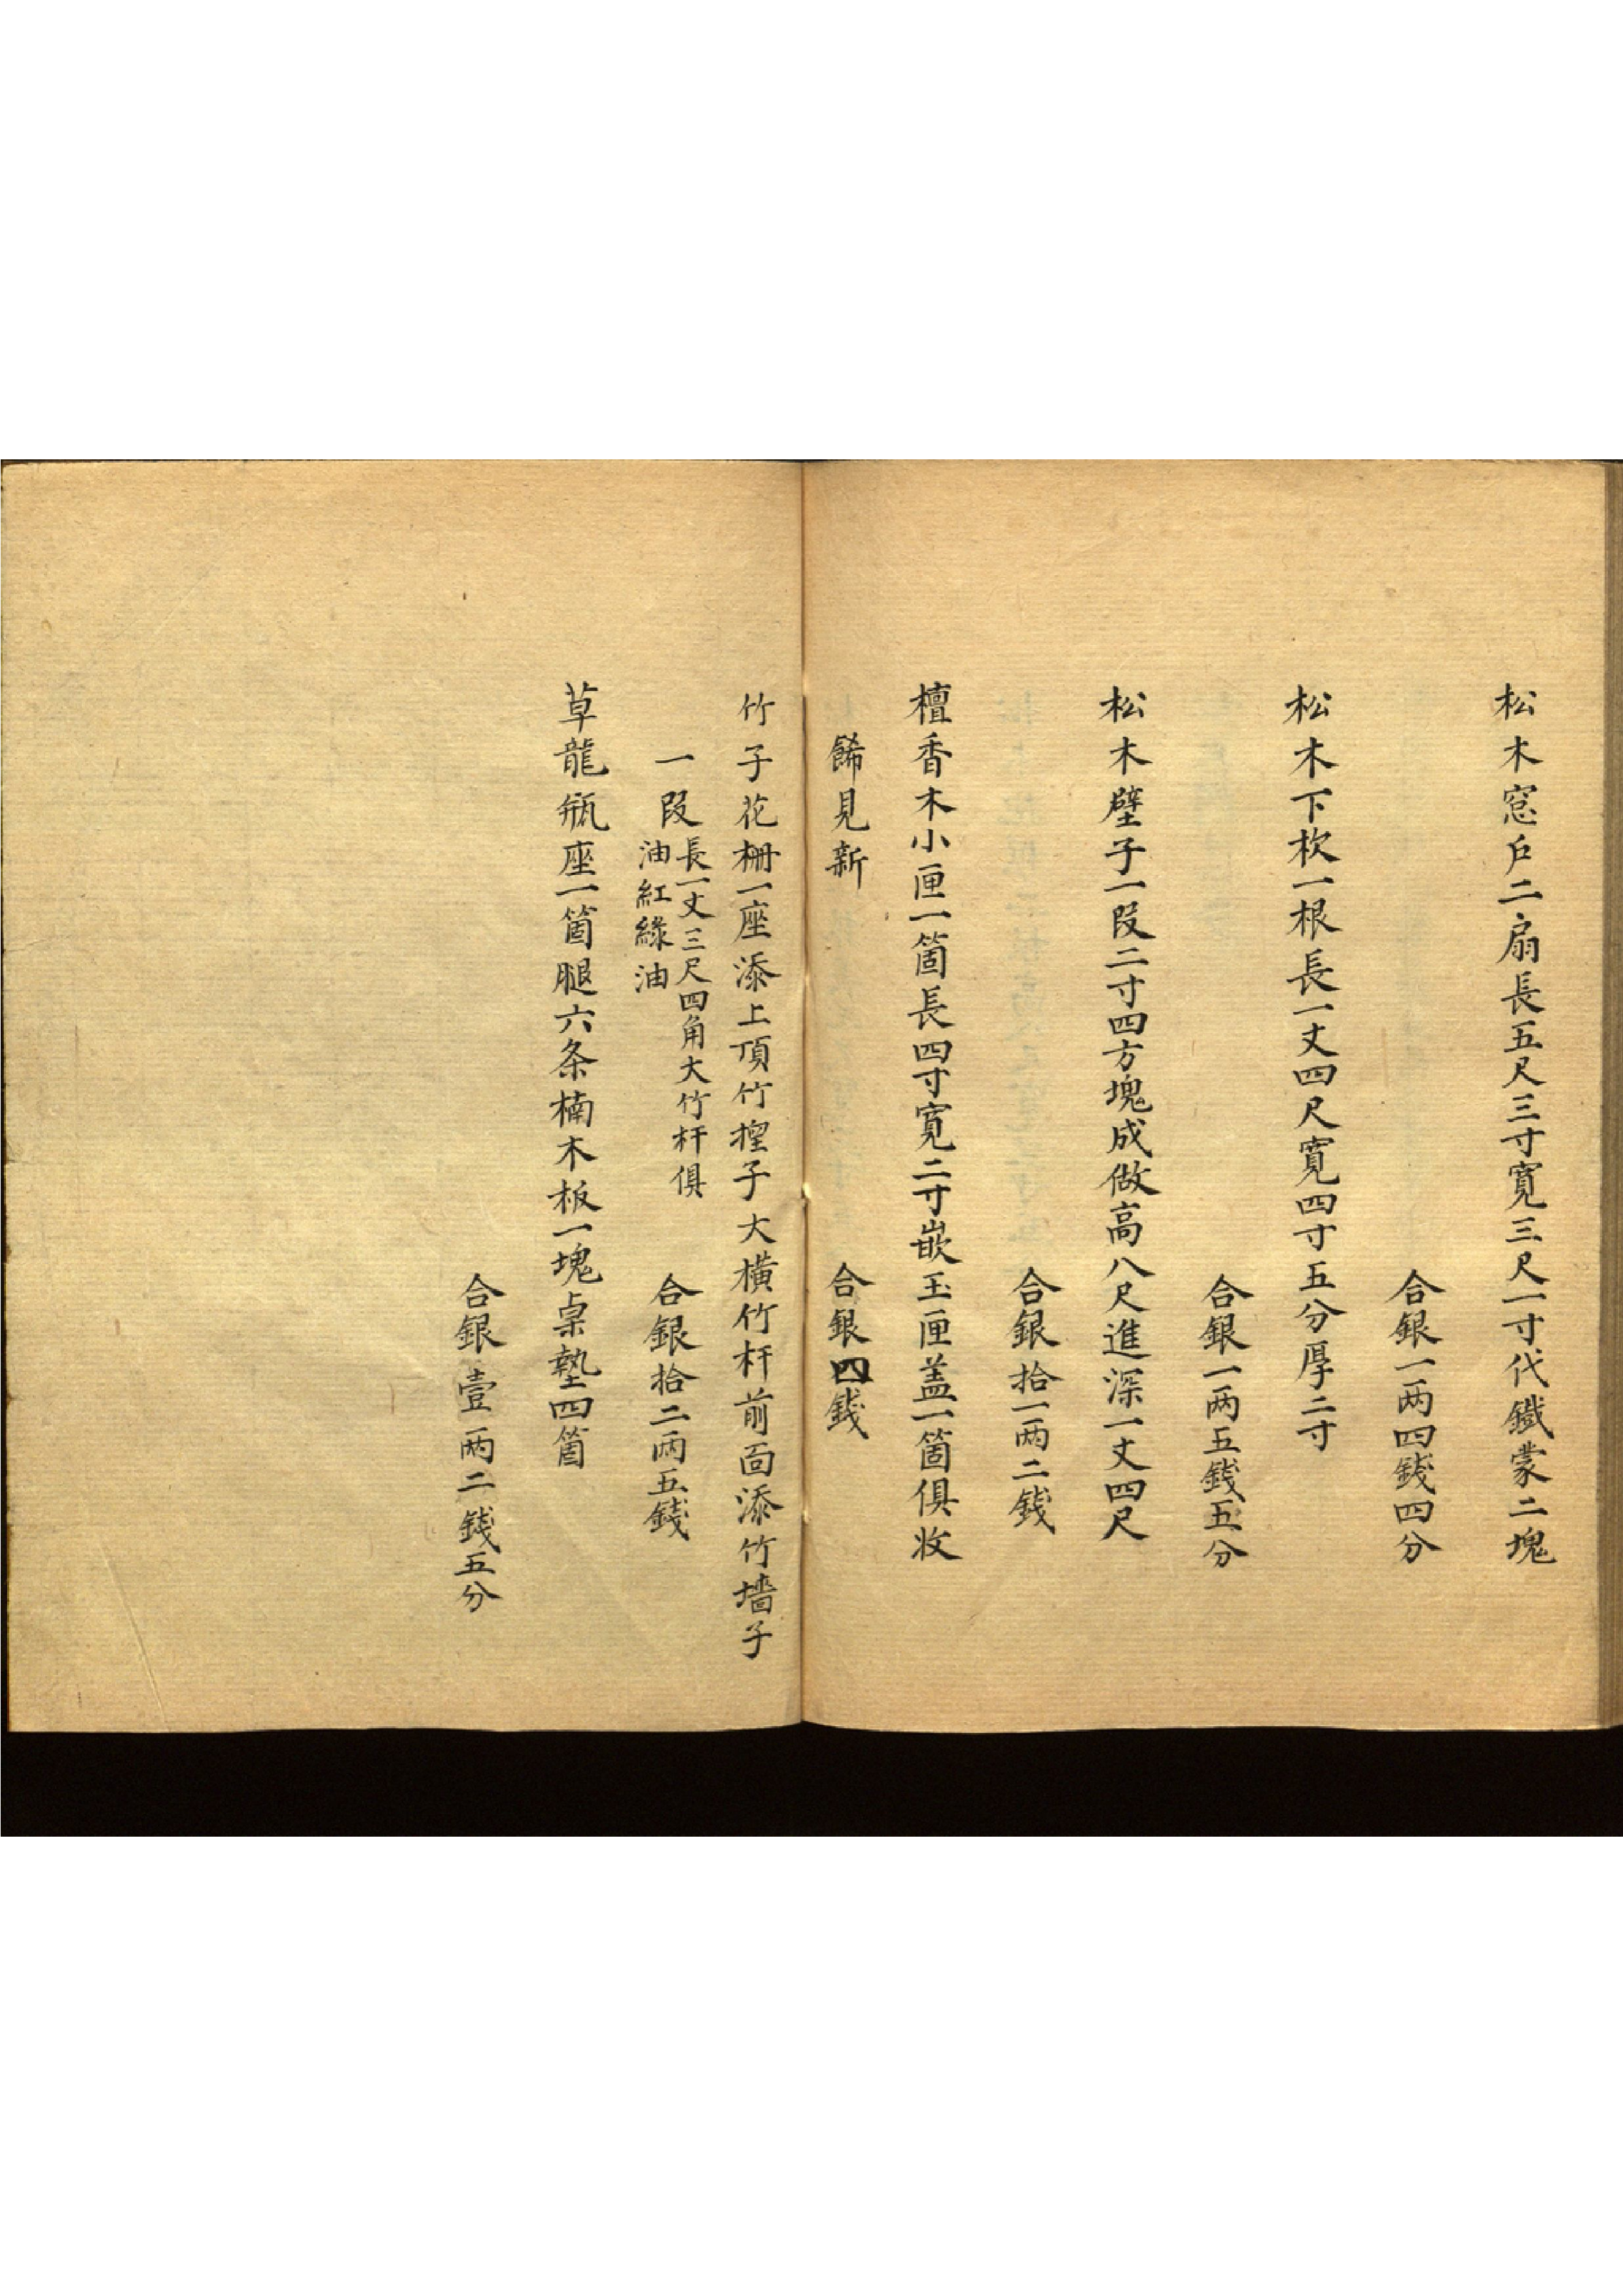 松木窓户二扇長五尺三寸寬三尺一寸代鐵蒙二塊
合銀一两四錢四分
松木下枚一根長一丈四尺寬四寸五分厚二寸
合銀一两五錢五分
松木壁子一段二寸四方塊成做高八尺進深一丈四尺
合銀拾一两二錢
檀香木小匣一箇長四寸寬二寸嵌玉匣盖一箇俱收
餙見新
合銀四錢
竹子花栅一座添上頂竹子大橫竹杆前面添竹墻子
一段
長一丈三尺四角大竹杆俱
油紅綠油
合銀拾二两五錢
草龍瓶座一箇腿六条楠木板一塊桌墊四箇
合銀壹两二錢五分